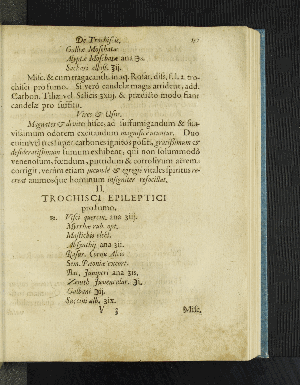 De Trochiscis.
Galliæ Moschatæ
Aliptæ Moschatæ ana ʒß.
Sacchari albiss. ʒij.
Misc. & cum tragacanth. in aq. Rosar. diss. f. l. a. tro-
chisci pro fumo. Si verò candelæ magis arrideat, add.
Carbon. Tiliæ vel Salicis ʒxiij. & prædicto modo fiant
candelæ pro suffitu.
Vires & Usus.
Magnates & divites hisce, ad suffumigandum & sua-
vissimum odorem excitandum magnificè utuntur. Duo
enim vel tres super carbones ignitos positi, gratissimum &
desideratissimum fumum exhibent, qui non solùm modò
venenosum, fœtidum, putridum & corrosivum aërem
corrigit, verùm etiam jucundè & egregiè vitales spiritus re-
creat animosque hominum insigniter refocillat.
II.
TROCHISCI EPILEPTICI
pro fumo.
℞. Visci quercin. ana ʒiij.
Myrrhæ rub. opt.
Mastichis elect.
Absynthij ana ʒii.
Rasur. Cornu Alcis
Sem. Pæoniæ excort.
Bac. Juniperi ana ʒiß.
Galbani ʒij.
Succini alb. ʒix.
V 3
Misc.